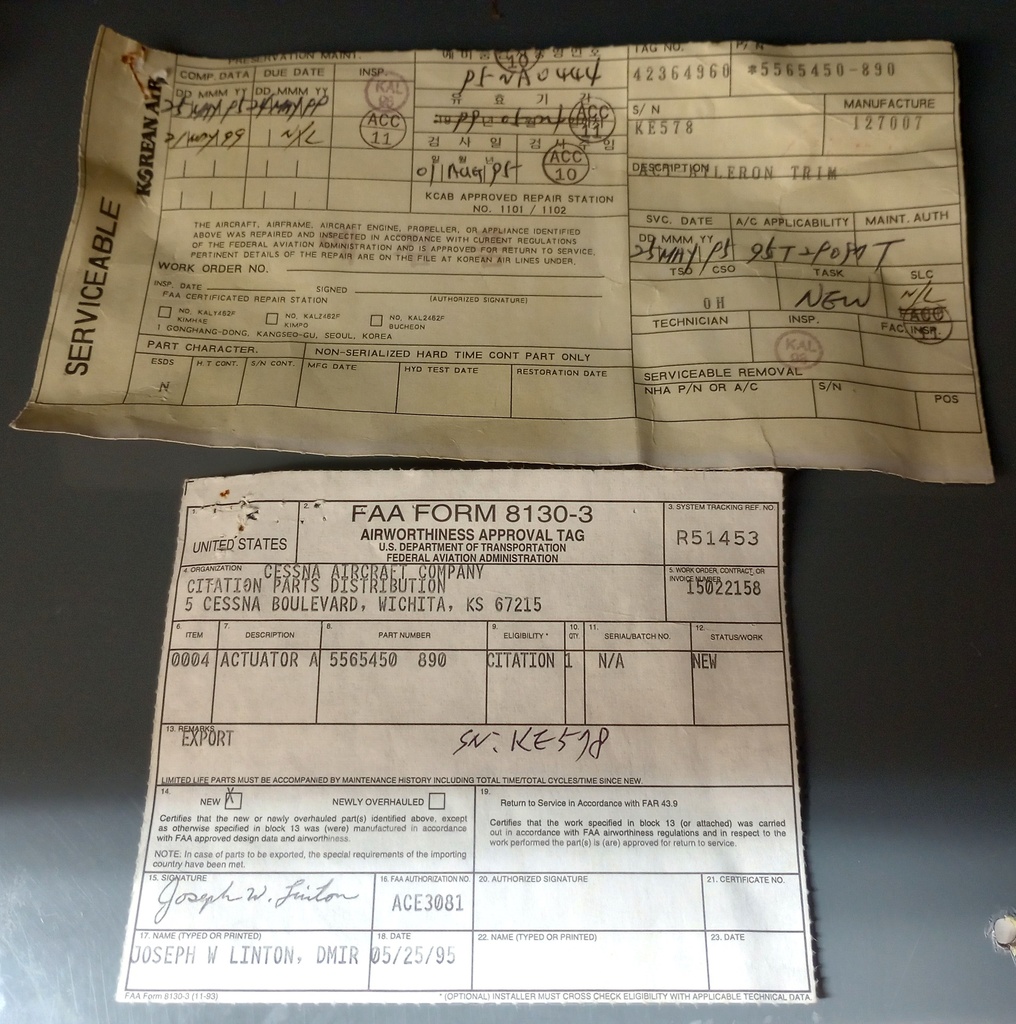 SERVICEABLE
KOREAN AIR
PRESERVATION MAINT.
COMP. DATA DUE DATE INSP.
DD MMM YY DD MMM YY
KAL
21 MAY 99 N/L
ACC 11
10
유 효 기 간
ACC 11
검 사 일 검 사
일 월 년
01 AUG
ACC 10
KCAB APPROVED REPAIR STATION
NO. 1101 / 1102
THE AIRCRAFT, AIRFRAME, AIRCRAFT ENGINE, PROPELLER, OR APPLIANCE IDENTIFIED
ABOVE WAS REPAIRED AND INSPECTED IN ACCORDANCE WITH CURRENT REGULATIONS
OF THE FEDERAL AVIATION ADMINISTRATION AND IS APPROVED FOR RETURN TO SERVICE.
PERTINENT DETAILS OF THE REPAIR ARE ON THE FILE AT KOREAN AIR LINES UNDER.
WORK ORDER NO.
INSP. DATE SIGNED
(AUTHORIZED SIGNATURE)
FAA CERTIFICATED REPAIR STATION
NO. KALY462F KIMHAE
NO. KALZ462F KIMPO
NO. KAL2462F BUCHEON
1 GONGHANG-DONG, KANGSEO-GU, SEOUL, KOREA
PART CHARACTER. NON-SERIALIZED HARD TIME CONT PART ONLY
ESDS H.T CONT. S/N CONT. MFG DATE HYD TEST DATE RESTORATION DATE
N
TAG NO. P/N
42364960 *5565450-890
S/N MANUFACTURE
KE578 127007
DESCRIPTION
AILERON TRIM
SVC. DATE A/C APPLICABILITY MAINT. AUTH
DD MMM YY
25 MAY
TSO CSO TASK SLC
OH NEW N/L
ACC 11
TECHNICIAN INSP. FAC INSP.
KAL
SERVICEABLE REMOVAL
NHA P/N OR A/C S/N POS
1. UNITED STATES
2. FAA FORM 8130-3
AIRWORTHINESS APPROVAL TAG
U.S. DEPARTMENT OF TRANSPORTATION
FEDERAL AVIATION ADMINISTRATION
3. SYSTEM TRACKING REF. NO.
R51453
4. ORGANIZATION CESSNA AIRCRAFT COMPANY
CITATION PARTS DISTRIBUTION
5 CESSNA BOULEVARD, WICHITA, KS 67215
5. WORK ORDER, CONTRACT, OR
INVOICE NUMBER
15022158
6. ITEM 7. DESCRIPTION 8. PART NUMBER 9. ELIGIBILITY * 10. QTY. 11. SERIAL/BATCH NO. 12. STATUS/WORK
0004 ACTUATOR A 5565450 890 CITATION 1 N/A NEW
13. REMARKS
EXPORT SN: KE578
LIMITED LIFE PARTS MUST BE ACCOMPANIED BY MAINTENANCE HISTORY INCLUDING TOTAL TIME/TOTAL CYCLES/TIME SINCE NEW.
14. NEW X NEWLY OVERHAULED
Certifies that the new or newly overhauled part(s) identified above, except
as otherwise specified in block 13 was (were) manufactured in accordance
with FAA approved design data and airworthiness.
NOTE. In case of parts to be exported, the special requirements of the importing
country have been met.
19. Return to Service in Accordance with FAR 43.9
Certifies that the work specified in block 13 (or attached) was carried
out in accordance with FAA airworthiness regulations and in respect to the
work performed the part(s) is (are) approved for return to service.
15. SIGNATURE 16. FAA AUTHORIZATION NO. 20. AUTHORIZED SIGNATURE 21. CERTIFICATE NO.
Joseph W. Linton ACE3081
17. NAME (TYPED OR PRINTED) 18. DATE 22. NAME (TYPED OR PRINTED) 23. DATE
JOSEPH W LINTON, DMIR 05/25/95
FAA Form 8130-3 (11-93) * (OPTIONAL) INSTALLER MUST CROSS CHECK ELIGIBILITY WITH APPLICABLE TECHNICAL DATA.